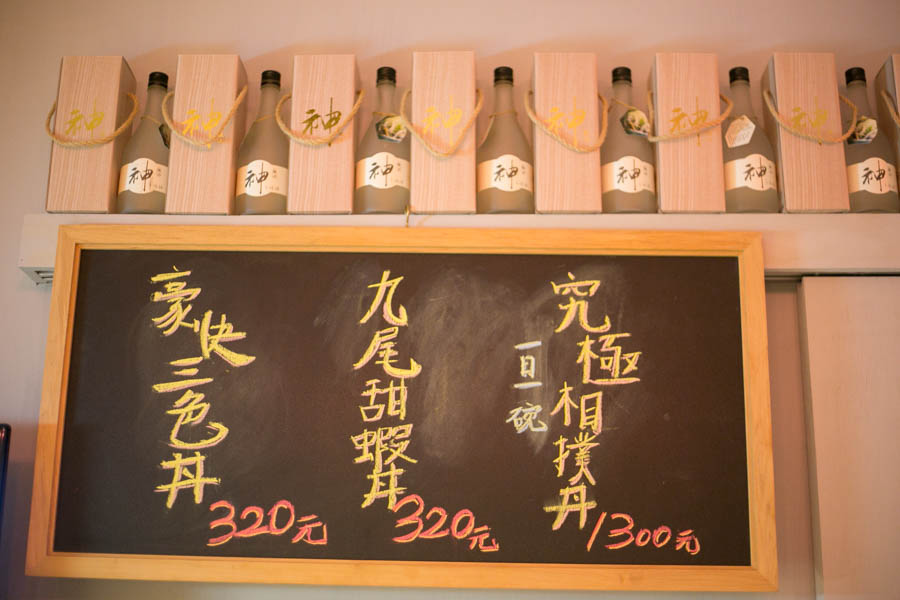 神
神
神
神
神
神
神
神
神
神
神
神
神
神
究極相撲丼
一日一碗
1300元
九尾甜蝦丼
320元
豪快三色丼
320元